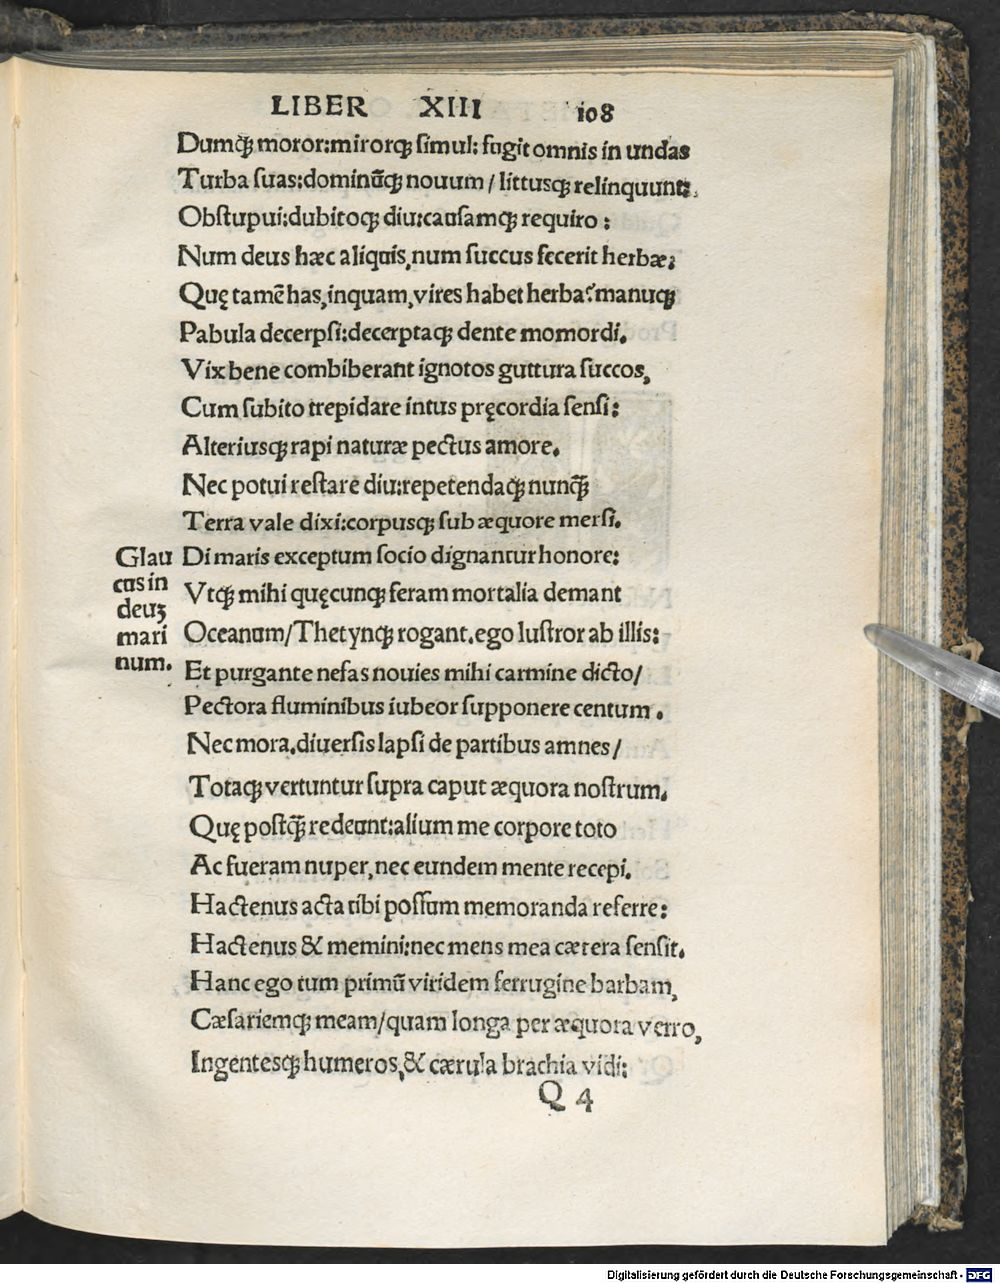 LIBER XIII 108
Dumq̃ꝫ moror:mirorqꝫ ſimul: fugit omnis in undas
Turba ſuas:dominūqꝫ nouum / littusqꝫ relinquunt;
Obſtupui:dubitoqꝫ diu:cauſamqꝫ requiro :
Num deus hæc aliquis,num ſuccus fecerit herbæ;
Quę tamẽ has,inquam,vires habet herba?manuqꝫ
Pabula decerpſi:decerptaqꝫ dente momordi.
Vix bene combiberant ignotos guttura ſuccos,
Cum ſubito trepidare intus pręcordia ſenſi:
Alteriusqꝫ rapi naturæ pectus amore.
Nec potui reſtare diu:repetendaqꝫ nunq̃ꝫ
Terra vale dixi:corpusqꝫ ſub æquore merſi.
Di maris exceptum ſocio dignantur honore:
Vtqꝫ mihi quęcunqꝫ feram mortalia demant
Oceanum/Thetynqꝫ rogant.ego luſtror ab illis:
Et purgante nefas nouies mihi carmine dicto/
Pectora fluminibus iubeor ſupponere centum .
Nec mora.diuerſis lapſi de partibus amnes/
Totaqꝫ vertuntur ſupra caput æquora noſtrum.
Quę poſtq̃ꝫ redeunt:alium me corpore toto
Ac fueram nuper,nec eundem mente recepi.
Hactenus acta tibi poſſum memoranda referre:
Hactenus & memini:nec mens mea cætera ſenſit.
Hanc ego tum primū viridem ferrugine barbam,
Cæſariemqꝫ meam/quam longa per æquora verro,
Ingentesqꝫ humeros,& cærula brachia vidi:
Q 4
Glau
cus in
deuꝫ
mari
num.
Digitalisierung gefördert durch die Deutsche Forschungsgemeinschaft - DFG